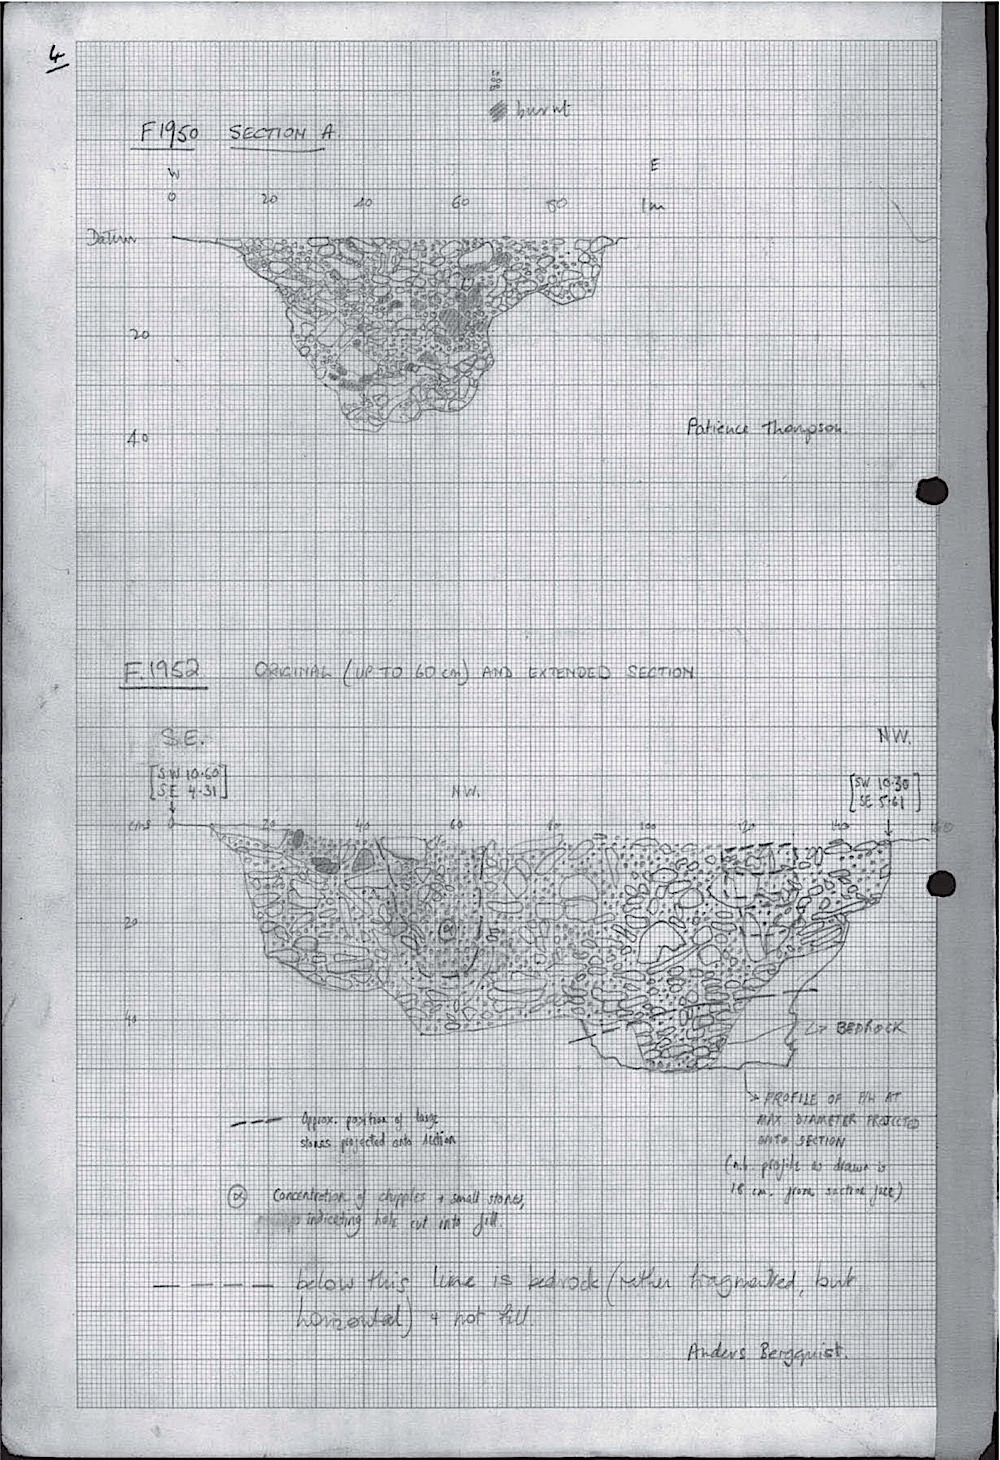 4
burnt
F1950 SECTION A.
W E
0 20 40 60 80 1m
Datum
20
40
Patience Thompson.
F.1952 ORIGINAL (UP TO 60 cm) AND EXTENDED SECTION
S.E. NW.
[SW 10.60 [SW 10.30
SE 4.31] SE 5.61]
NW.
cms 0 20 40 60 80 100 120 140 160
20
α
40
BEDROCK
PROFILE OF P/H AT
MAX. DIAMETER PROJECTED
ONTO SECTION
(n.b. profile as drawn is
18 cm. from section face)
Approx. position of large
stones projected onto section
α Concentration of chipples + small stones,
indicating hole cut into fill.
below this line is bedrock (rather fragmented, but
horizontal) + not fill.
Anders Bergquist.